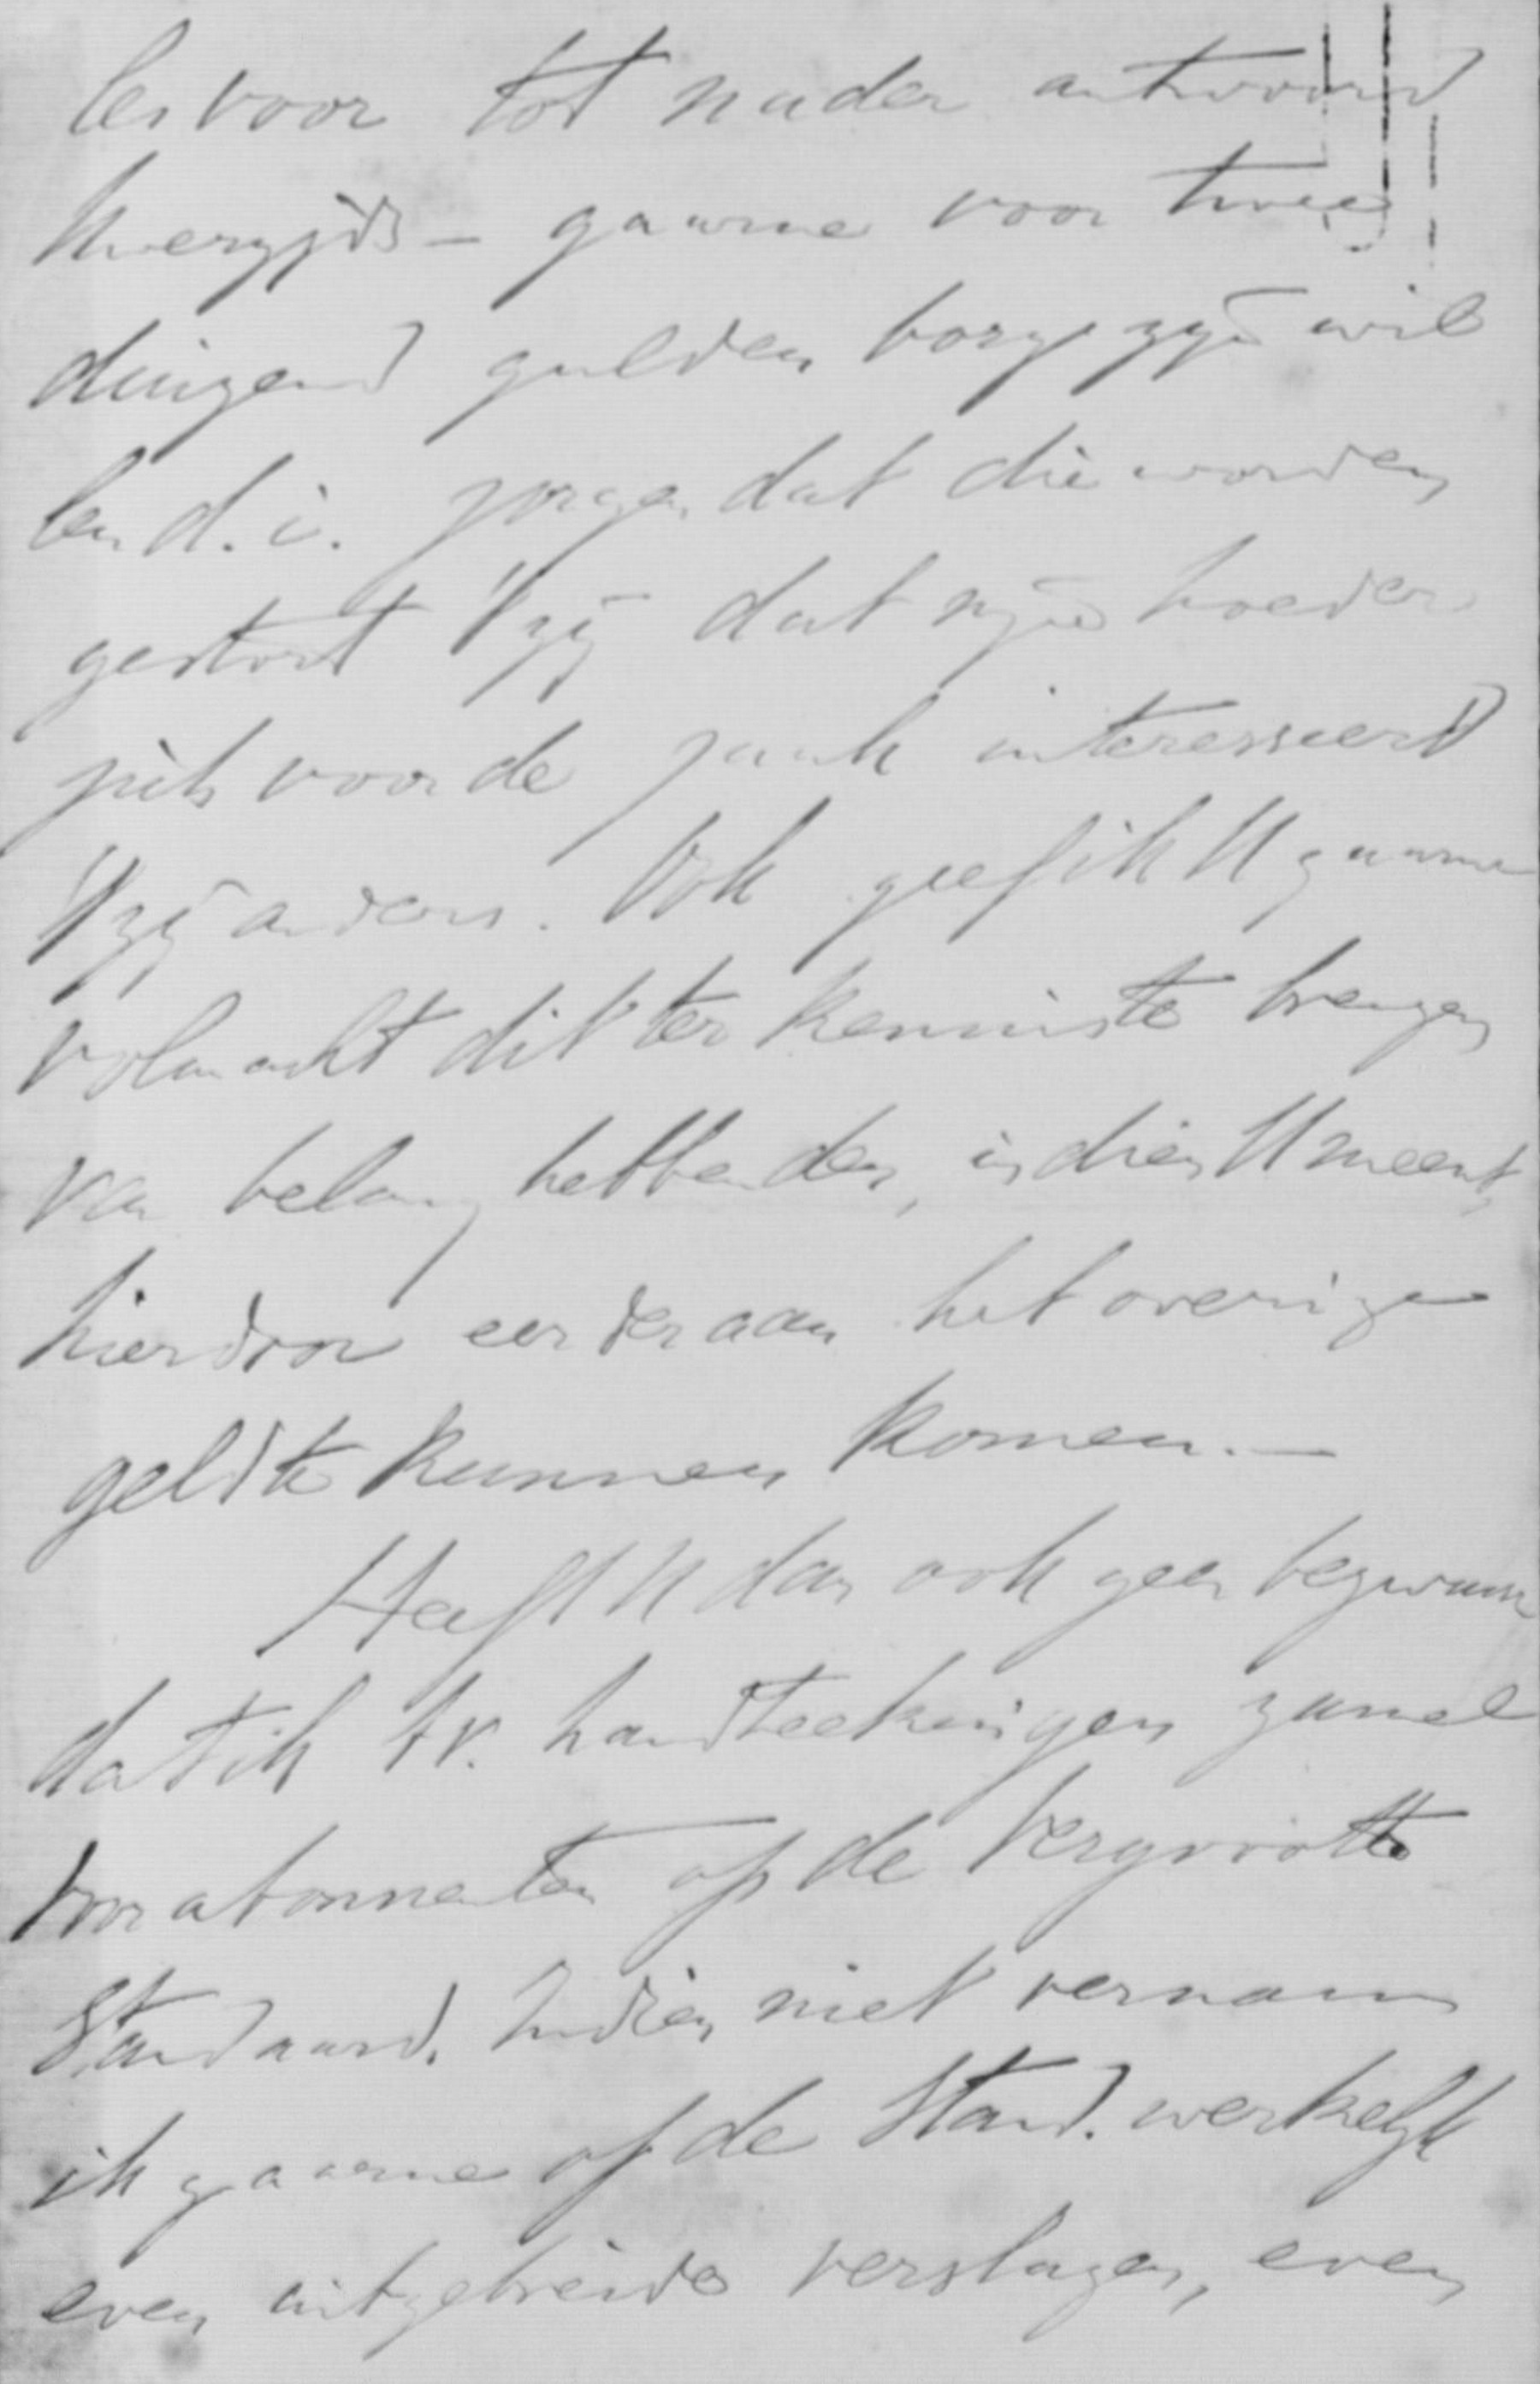 les voor tot nader antwoord
Uwerzijds – gaarne voor twee
duizend gulden borg zijn wil
len d.i. zorgen dat die worden
gestort 't zij dat mijn broeder
zich voor de zaak interesseert
't zij anders. Ook geef ik U gaarne
volmacht dit ter kennis te brengen
van belanghebbenden, indien U meent,
hierdoor eerder aan het overige
geld te kunnen komen. —
Heeft U dan ook geen bezwaar
dat ik handteekeningen zamel
voor abonnenten op de Vergrootte
Standaard. Indien niet vernam
ik gaarne of de Stand. werkelijk
even uitgebreide verslagen, even